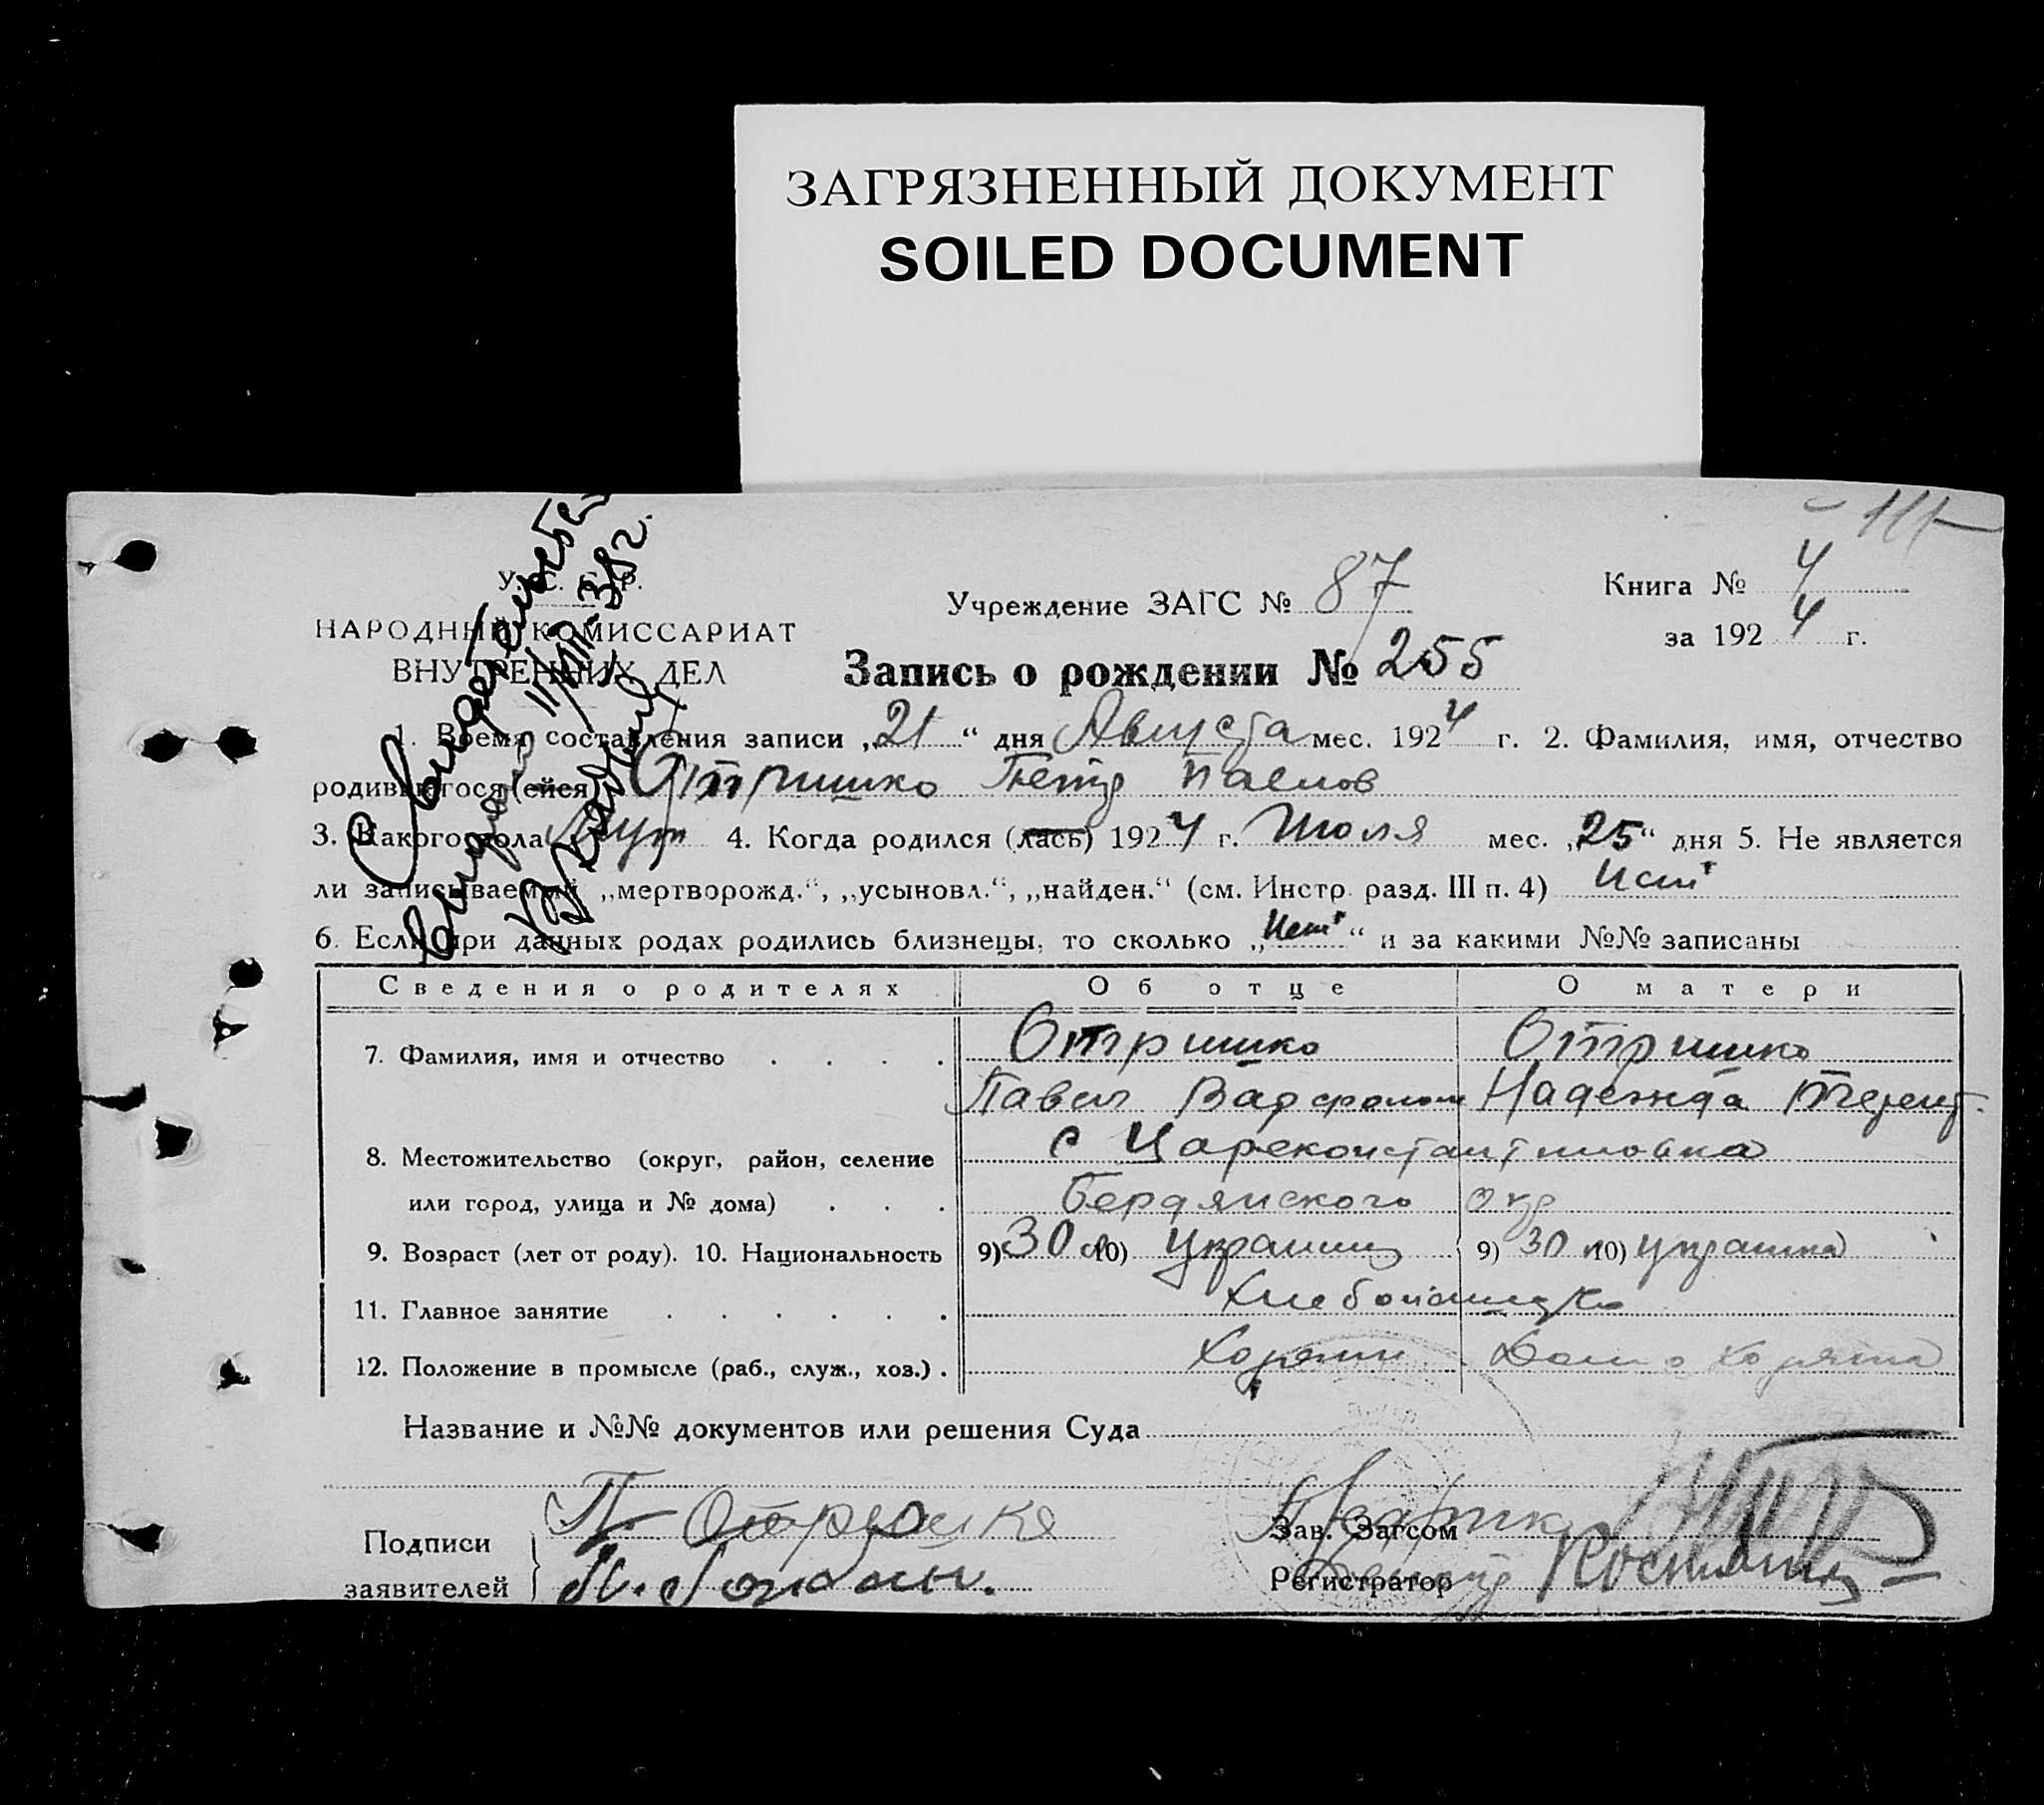 ЗАГРЯЗНЕННЫЙ ДОКУМЕНТ
SOILED DOCUMENT
У. С. С. Р.
НАРОДНЫЙ КОМИССАРИАТ
ВНУТРЕННИХ ДЕЛ
Учреждение ЗАГС № 87
Книга № 4
за 1924 г.
Запись о рождении № 255
1. Время составления записи „21“ дня Августа мес. 1924 г. 2. Фамилия, имя, отчество
родившегося (ейся) Отришко Петр Павлов
3. Какого пола Муж 4. Когда родился (лась) 1924 г. Июля мес. „25“ дня 5. Не является
ли записываемый „мертворожд.“, „усыновл.“, „найден.“ (см. Инстр. разд. III п. 4) Нет
6. Если при данных родах родились близнецы, то сколько „Нет“ и за какими №№ записаны
Сведения о родителях Об отце О матери
7. Фамилия, имя и отчество . . . . Отришко Отришко
Павел Варфолом Надежда Терент.
8. Местожительство (округ, район, селение с Цареконстантиновка
или город, улица и № дома) . . . Бердянского окр
9. Возраст (лет от роду). 10. Национальность 9) 30 л 10) украинц 9) 30 л 10) украинка
11. Главное занятие . . . . . .
12. Положение в промысле (раб., служ., хоз.) . Хозяин Дом. хозяйка
Название и №№ документов или решения Суда
Подписи
заявителей
П. Отришко
Зав. Загсом
Регистратор
Свидетельство
выдано 11/VIII-38г.